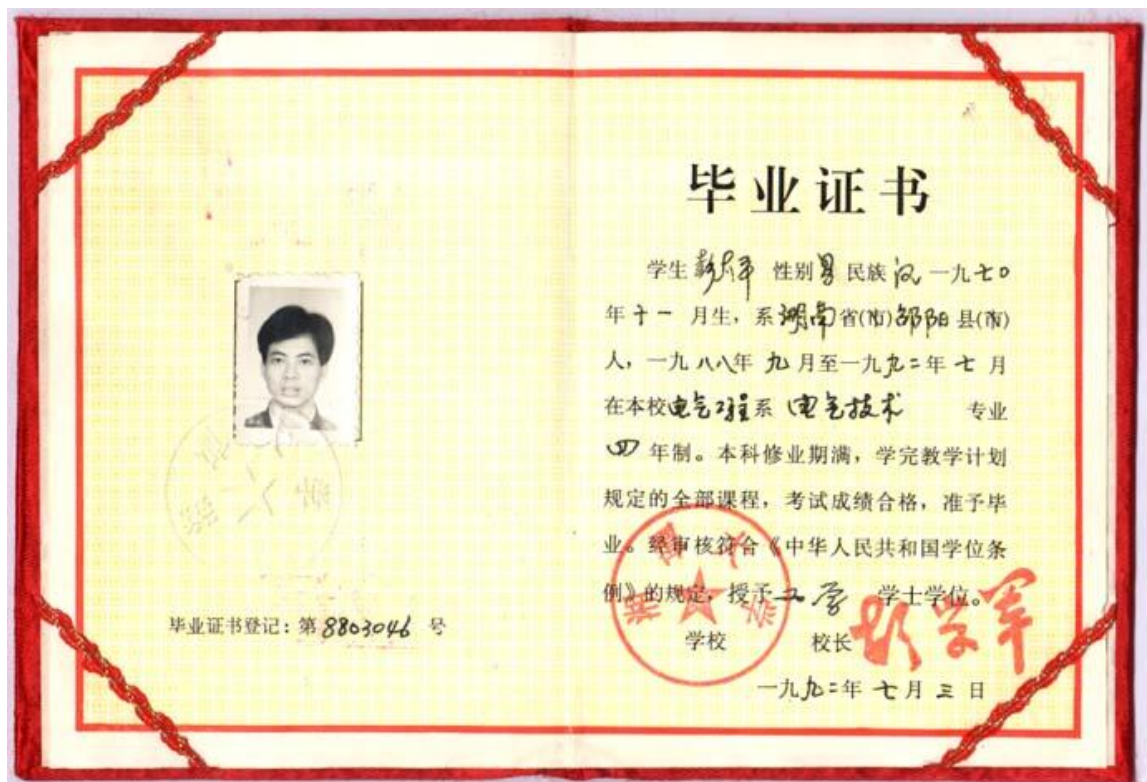 毕业证书登记:第8803046 号
毕业证书
学生彭 性别男民族汉一九七〇
年十一 月生,系湖南省(市)邵阳县(市)
人,一九八八年 九月至一九九二年 七 月
在本校电气工程系 电气技术 专业
四 年制。本科修业期满,学完教学计划
规定的全部课程,考试成绩合格,准予毕
业。经审核符合《中华人民共和国学位条
例》的规定,授予工学 学士学位。
学校 校长
一九九二年 七月 三 日